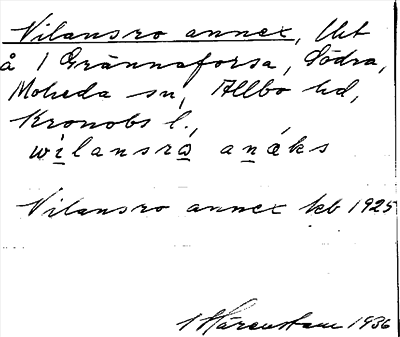 Vilansro annex, lht
å 1 Grännaforsa, Södra,
Moheda sn, Allbo hd,
Kronobs l.,
wilansrω anáks
Vilansro annex kb 1925
Härenstam 1936